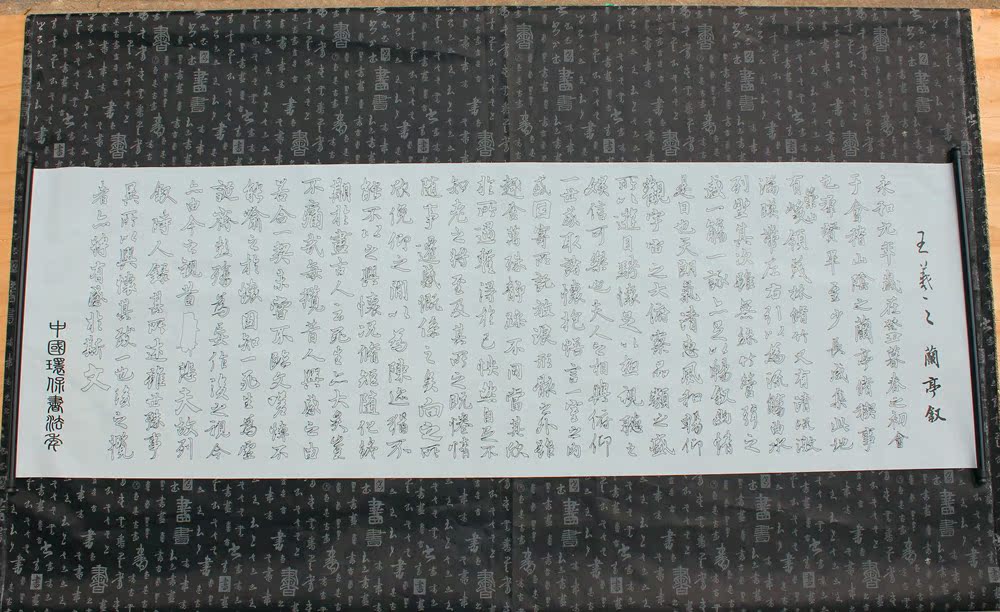 王羲之 蘭亭叙
永和九年歲在癸丑暮春之初會
于會稽山陰之蘭亭脩稧事
也羣賢畢至少長咸集此地
有崇山峻領茂林脩竹又有清流激
湍暎帶左右引以為流觴曲水
列坐其次雖無絲竹管弦之
盛一觴一詠亦足以暢叙幽情
是日也天朗氣清惠風和暢仰
觀宇宙之大俯察品類之盛
所以遊目騁懷足以極視聽之
娛信可樂也夫人之相與俯仰
一世或取諸懷抱悟言一室之內
或因寄所託放浪形骸之外雖
趣舍萬殊靜躁不同當其欣
於所遇暫得於己快然自足不
知老之將至及其所之既惓情
隨事遷感慨係之矣向之所
欣俛仰之間以為陳迹猶不
能不以之興懷況脩短隨化終
期於盡古人云死生亦大矣豈
不痛哉每攬昔人興感之由
若合一契未嘗不臨文嗟悼不
能喻之於懷固知一死生為虛
誕齊彭殤為妄作後之視今
亦由今之視昔悲夫故列
叙時人錄其所述雖世殊事
異所以興懷其致一也後之攬
者亦將有感於斯文
中國環保書法布